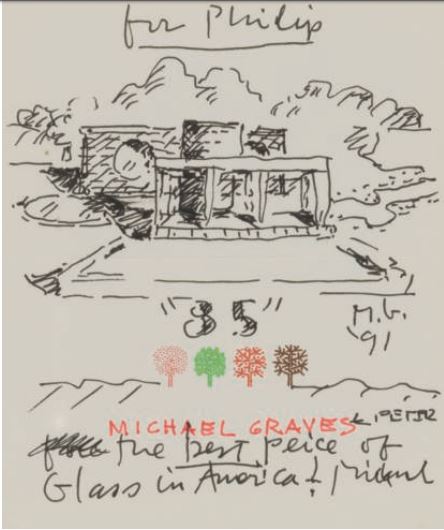 for Philip
"85"
M.G.
'91
MICHAEL GRAVES ← PETER
the best peice of
Glass in America!